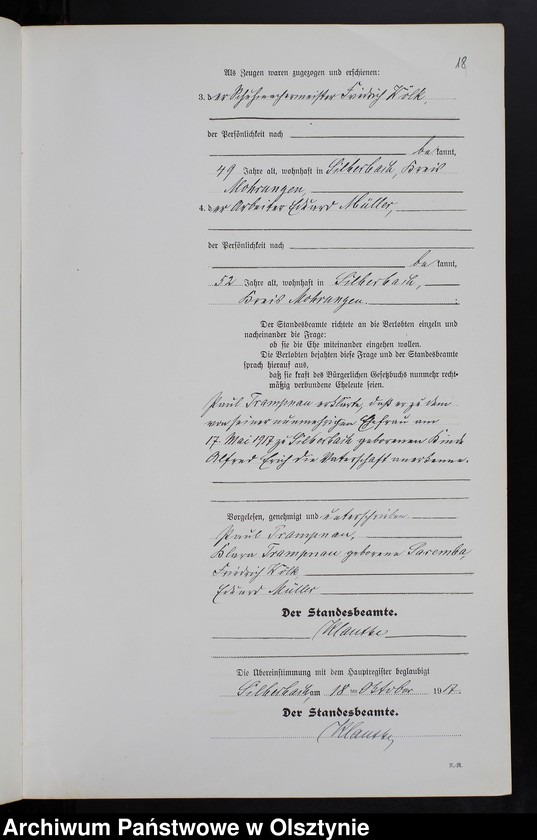 18
Als Zeugen waren zugezogen und erschienen:
3. der Schuhmachermeister Friedrich Wölk,
der Persönlichkeit nach
be kannt,
49 Jahre alt, wohnhaft in Silberbach, Kreis
Mohrungen,
4. der Arbeiter Eduard Müller,
der Persönlichkeit nach
be kannt,
52 Jahre alt, wohnhaft in Silberbach,
Kreis Mohrungen.
Der Standesbeamte richtete an die Verlobten einzeln und
nacheinander die Frage:
ob sie die Ehe miteinander eingehen wollen.
Die Verlobten bejahten diese Frage und der Standesbeamte
sprach hierauf aus,
daß sie kraft des Bürgerlichen Gesetzbuchs nunmehr recht-
mäßig verbundene Eheleute seien.
Paul Trampnau erklärte, daß er zu dem
von seiner nunmehrigen Ehefrau am
17. Mai 1917 zu Silberbach geborenen Kinde
Alfred Erich die Vaterschaft anerkenne.
Vorgelesen, genehmigt und unterschrieben
Paul Trampnau,
Klara Trampnau geborene Saremba
Friedrich Wölk
Eduard Müller
Der Standesbeamte.
Die Übereinstimmung mit dem Hauptregister beglaubigt
Silberbach, am 18 ten Oktober 1917.
Der Standesbeamte.
Archiwum Państwowe w Olsztynie